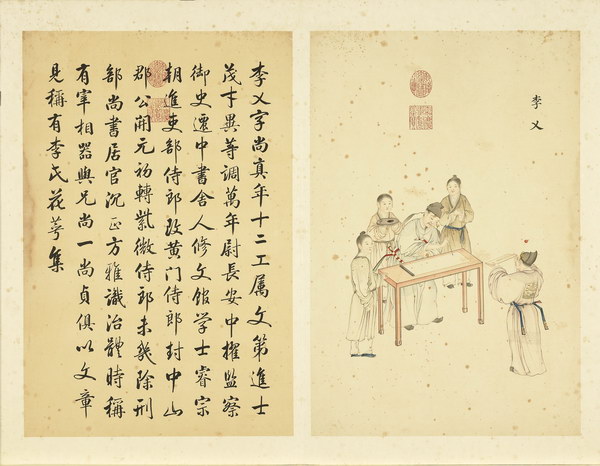 李乂
李乂字尚真年十二工屬文第進士
茂才異等調萬年尉長安中擢監察
御史遷中書舍人修文館学士睿宗
朝進吏部侍郎改黄门侍郎封中山
郡公開元初轉紫微侍郎未幾除刑
部尚書居官沉正方雅識治體時稱
有宰相器與兄尚一尚貞俱以文章
見稱有李氏花萼集